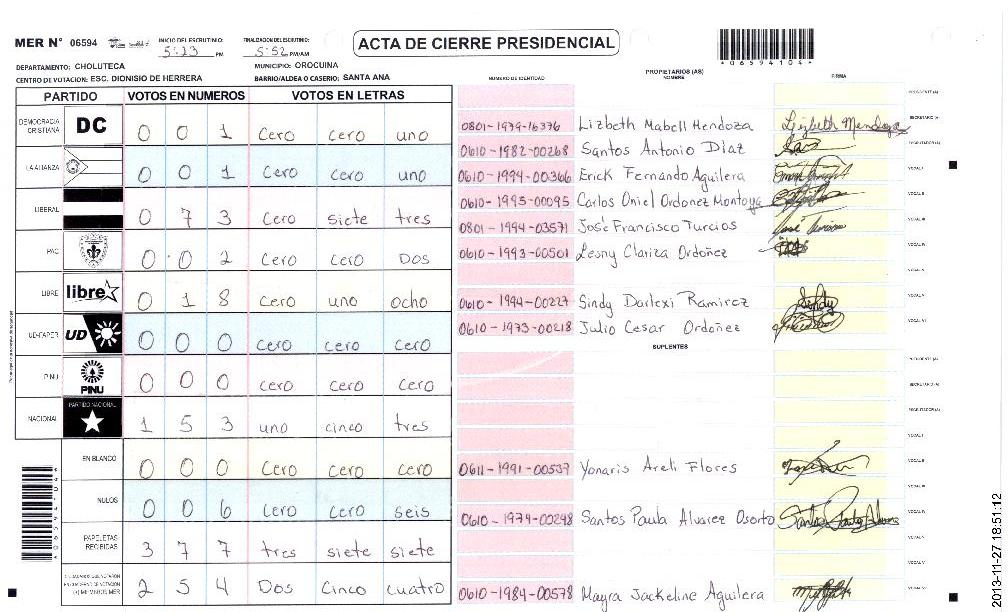 MER N° 06594
INICIO DEL ESCRUTINIO: 5:23 PM
FINALIZACION DEL ESCRUTINIO: 5:52 PM/AM
ACTA DE CIERRE PRESIDENCIAL
*06594104*
DEPARTAMENTO: CHOLUTECA
MUNICIPIO: OROCUINA
CENTRO DE VOTACION: ESC. DIONISIO DE HERRERA
BARRIO/ALDEA O CASERIO: SANTA ANA
PARTIDO VOTOS EN NUMEROS VOTOS EN LETRAS
DEMOCRACIA CRISTIANA DC 0 0 1 Cero cero uno
LA ALIANZA 0 0 1 Cero cero uno
LIBERAL 0 7 3 Cero siete tres
PAC 0 0 2 Cero Cero Dos
LIBRE libre 0 1 8 Cero uno ocho
UD-FAPER UD 0 0 0 Cero Cero Cero
PINU PINU 0 0 0 Cero Cero Cero
NACIONAL PARTIDO NACIONAL 1 5 3 uno cinco tres
EN BLANCO 0 0 0 Cero Cero Cero
NULOS 0 0 6 Cero Cero seis
PAPELETAS RECIBIDAS 3 7 7 tres siete siete
2 5 4 Dos Cinco cuatro
NUMERO DE IDENTIDAD
PROPIETARIOS (AS)
NOMBRE
FIRMA
PRESIDENTE (A)
0801-1979-16376 Lizbeth Mabell Mendoza Lizbeth Mendoza SECRETARIO (A)
0610-1982-00268 Santos Antonio Díaz ESCRUTADOR (A)
0610-1994-00366 Erick Fernando Aguilera VOCAL I
0610-1995-00095 Carlos Oniel Ordonez Montoya VOCAL II
0801-1994-03571 José Francisco Turcios VOCAL III
0610-1993-00501 Lesny Clariza Ordoñez VOCAL IV
0610-1994-00227 Sindy Darlexi Ramirez Sindy
0610-1973-00218 Julio Cesar Ordoñez
SUPLENTES
PRESIDENTE (A)
SECRETARIO (A)
ESCRUTADOR (A)
VOCAL I
0611-1991-00537 Yonaris Areli Flores
0610-1974-00248 Santos Paula Alvarez Osorto
0610-1984-00578 Mayra Jackeline Aguilera
2013-11-27 18:51:12